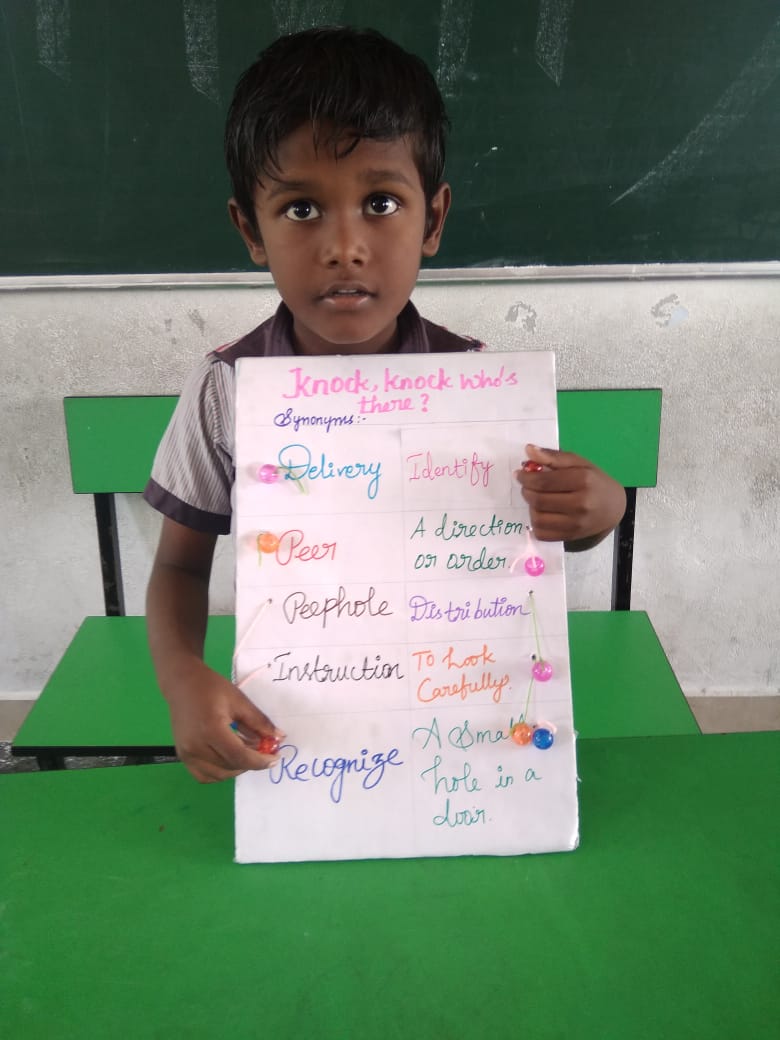 Knock, knock who's
there?
Synonyms:-
Delivery
Identify
Peer
A direction
or order.
Peephole
Distribution
Instruction
To Look
Carefully.
Recognize
A Small
hole in a
door.